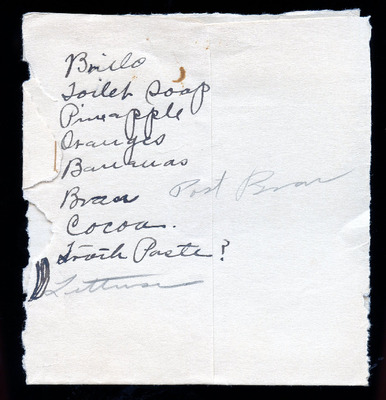 Brillo
Toilet Soap
Pineapple
Oranges
Bananas
Bran Post Bran
Cocoa.
Tooth Paste?
Lettuce